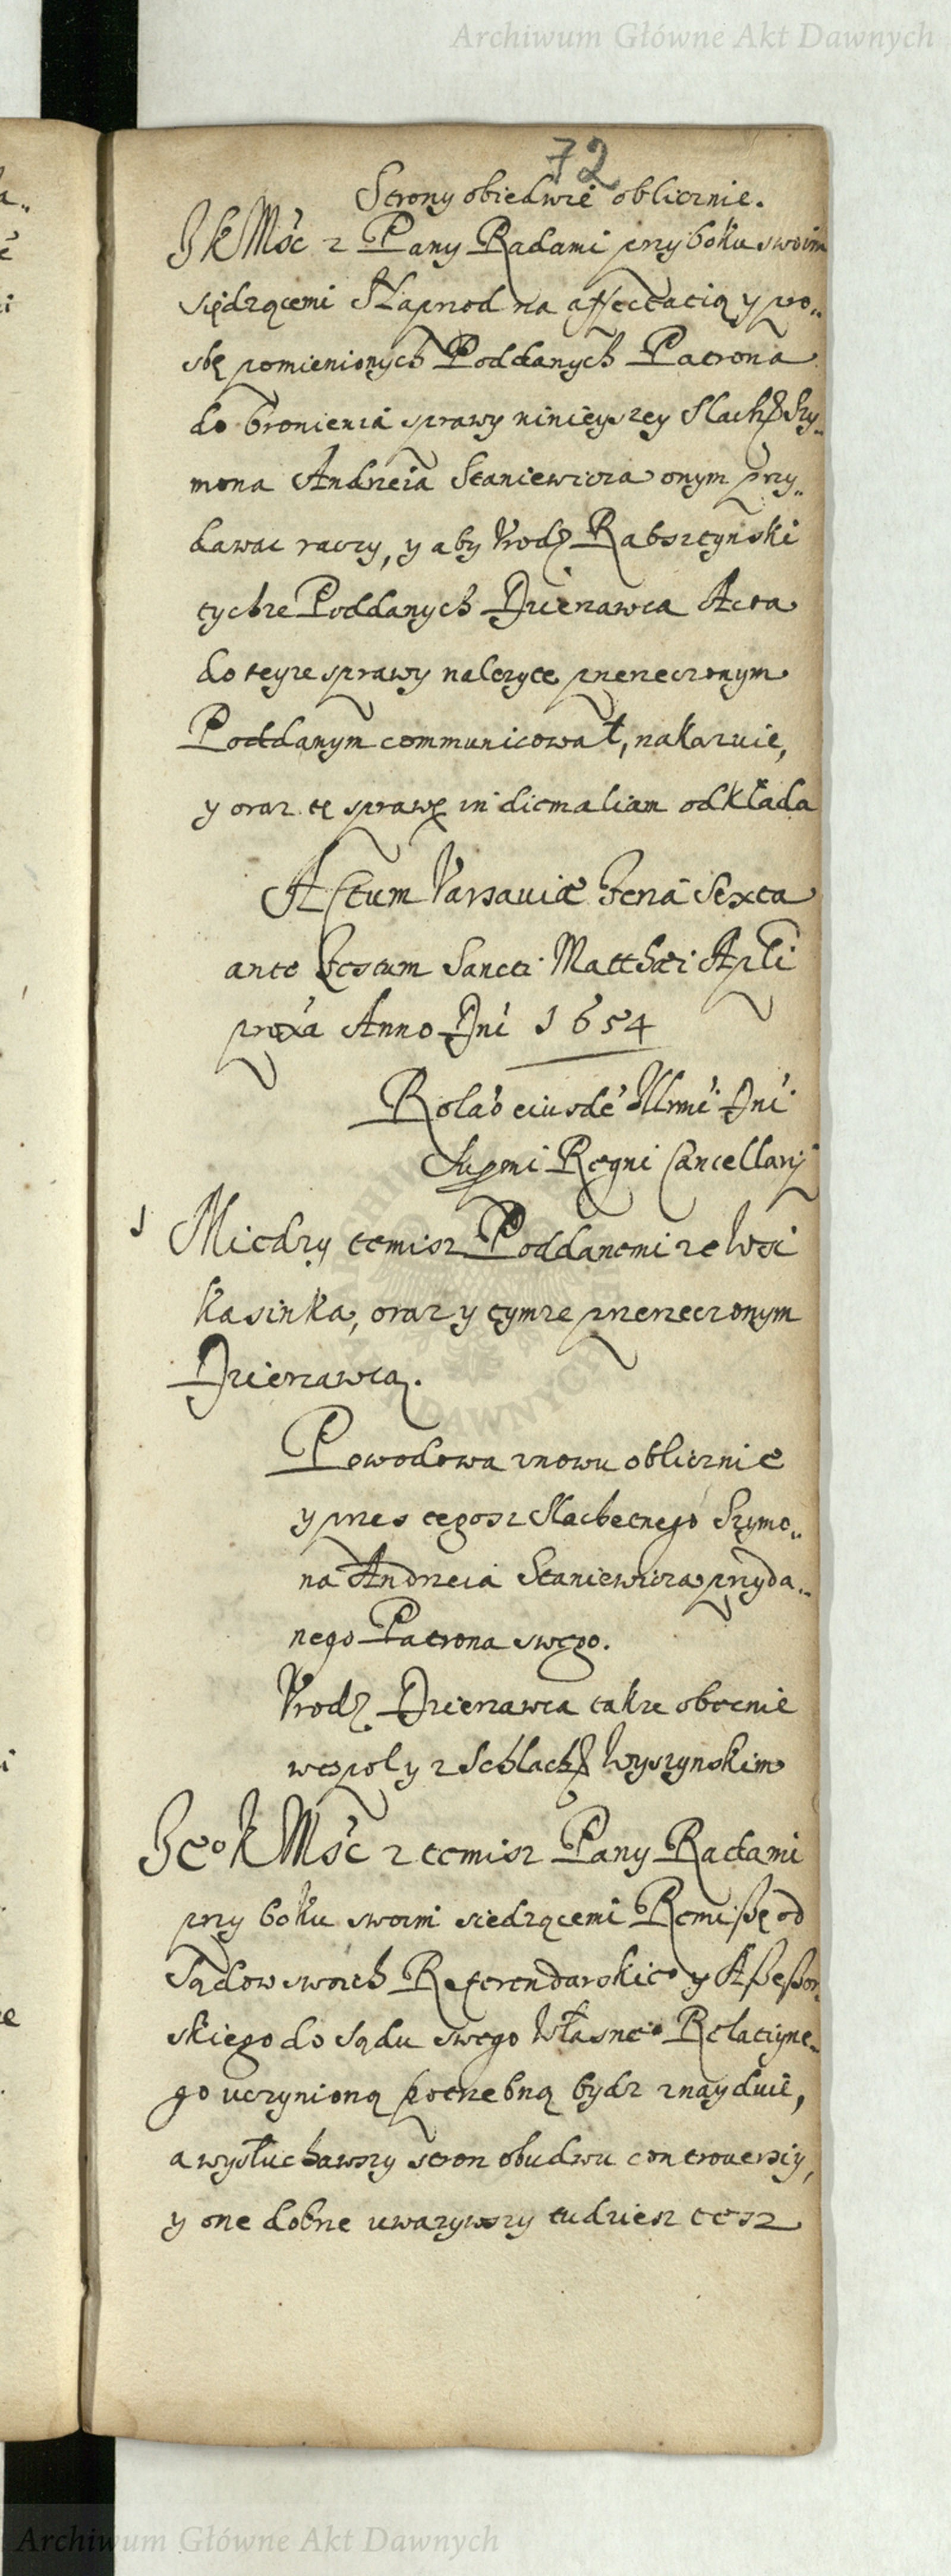 Archiwum Główne Akt Dawnych
72
Strony obiedwie oblicznie.
JKMśc z Pany Radami przy boku swoim
siędzącemi Naprzod na affectatią y pro„
sbę pomienionych Poddanych Patrona
do bronienia sprawy ninieyszey Slach. Szy„
mona Andrzeia Staniewicza onym przy„
dawac raczy, y aby Vrodz. Rabsztynski
tychze Poddanych Dzierzawca Acta
do teyze sprawy nalezyte przerzeczonym
Poddanym communicował, nakazuie,
y oraz tę sprawę in dicmaliam odkłada
Actum Varsaviæ Feria Sexta
ante Festum Sancti Matthæi Apli
proxa Anno Dni 1654
Relaō eiusdē Illrmi Dni
Supmi Regni Cancellarij
1 Miedzy temisz Poddanemi ze Wsi
Kasinka, oraz y tymze przerzeczonym
Dzierzawcą.
Powodowa znowu oblicznie
y przes tegosz Slachetnego Szymo„
na Andrzeia Staniewicza przyda„
nego Patrona swego.
Vrodz. Dzierzawca takze obecnie
wespoły z Schlach. Wyszynskim
Jeo K Mśc z temisz Pany Radami
przy boku swoim siedzącemi Remissę od
Sądow swoich Referendarskieo y Assessor„
skiego do sądu swego Własneo Relacyine„
go uczynioną potrzebną bydz znayduie,
a wysłuchawszy stron obudwu controuersiy,
y one dobrze uwazywszy tudziesz tesz
Archiwum Główne Akt Dawnych